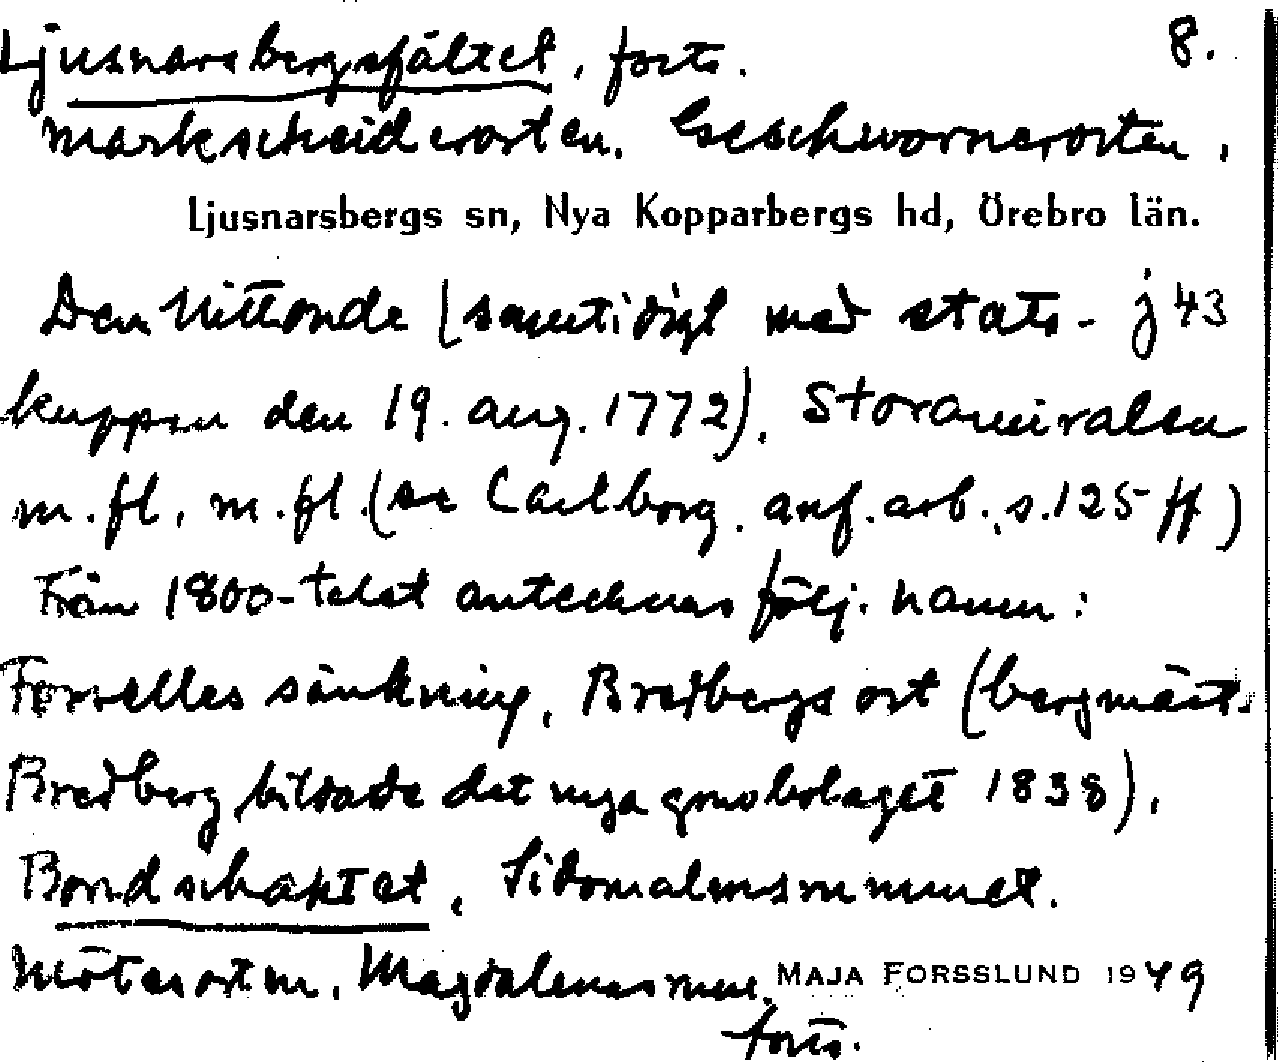 Ljusnarsbergsfältet, forts. 8.
Markscheiderorten. Geschwornerorten,
Ljusnarsbergs sn, Nya Kopparbergs hd, Örebro län.
Den Nittonde (samtidigt med stats- j 43
kuppen den 19. aug. 1772), Storamiralen
m.fl, m.fl. (se Carlborg. anf. arb., s. 125 ff)
Från 1800-talet antecknas följ. namn:
Forselles sänkning, Bredbergs ort (bergmäst.
Bredberg bildade det nya gruvbolaget 1838),
Bondschaktet, Sidomalmsrummet.
Mötesorten, Magdalenasrum, MAJA FORSSLUND 1949
forts.